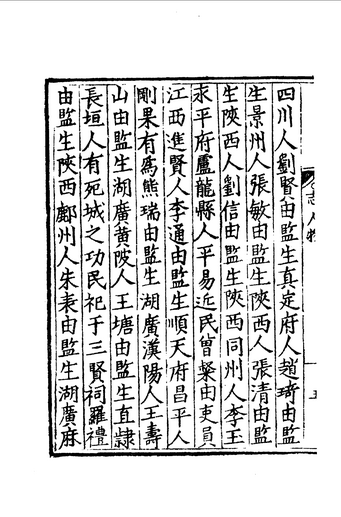 四川人劉賢由監生真定府人趙琦由監
生景州人張敏由監生陝西人張清由監
生陝西人劉信由監生陝西同州人李玉
永平府盧龍縣人平易近民曾粲由吏員
江西進賢人李通由監生順天府昌平人
剛果有為熊瑞由監生湖廣漢陽人王壽
山由監生湖廣黄陂人王塘由監生直隸
長垣人有死城之功民祀于三賢祠羅禮
由監生陝西鄜州人朱表由監生湖廣麻
志人物
五